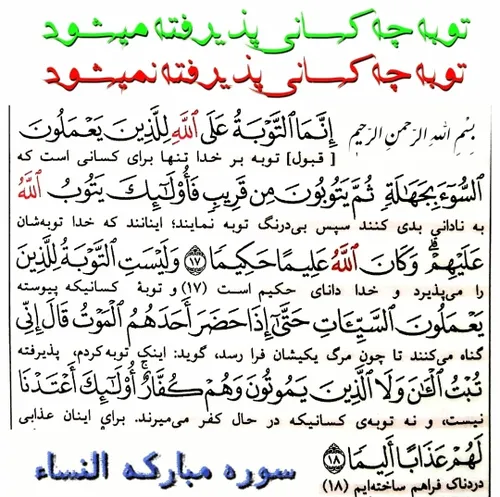 توبه چه کسانی پذیرفته میشود
توبه چه کسانی پذیرفته نمیشود
بِسْمِ اللهِ الرَّحْمنِ الرَّحِيمِ إِنَّمَا ٱلتَّوْبَةُ عَلَى ٱللَّهِ لِلَّذِينَ يَعْمَلُونَ
[قبول] توبه بر خدا تنها برای کسانی است که
ٱلسُّوٓءَ بِجَهَٰلَةٍ ثُمَّ يَتُوبُونَ مِن قَرِيبٍ فَأُو۟لَٰٓئِكَ يَتُوبُ ٱللَّهُ
به نادانی بدی کنند سپس بی‌درنگ توبه نمایند؛ اینانند که خدا توبه‌شان
عَلَيْهِمْ ۗ وَكَانَ ٱللَّهُ عَلِيمًا حَكِيمًا ﴿١٧﴾ وَلَيْسَتِ ٱلتَّوْبَةُ لِلَّذِينَ
را می‌پذیرد و خدا دانای حکیم است (۱۷) و توبهٔ کسانیکه پیوسته
يَعْمَلُونَ ٱلسَّيِّـَٔاتِ حَتَّىٰٓ إِذَا حَضَرَ أَحَدَهُمُ ٱلْمَوْتُ قَالَ إِنِّى
گناه می‌کنند تا چون مرگ یکیشان فرا رسد، گوید: اینک توبه‌کردم، پذیرفته
تُبْتُ ٱلْـَٰٔنَ وَلَا ٱلَّذِينَ يَمُوتُونَ وَهُمْ كُفَّارٌ ۚ أُو۟لَٰٓئِكَ أَعْتَدْنَا
نیست، و نه توبه‌ی کسانیکه در حال کفر می‌میرند. برای اینان عذابی
لَهُمْ عَذَابًا أَلِيمًا ﴿١٨﴾ سوره مبارکه النساء
دردناک فراهم ساخته‌ایم (۱۸)